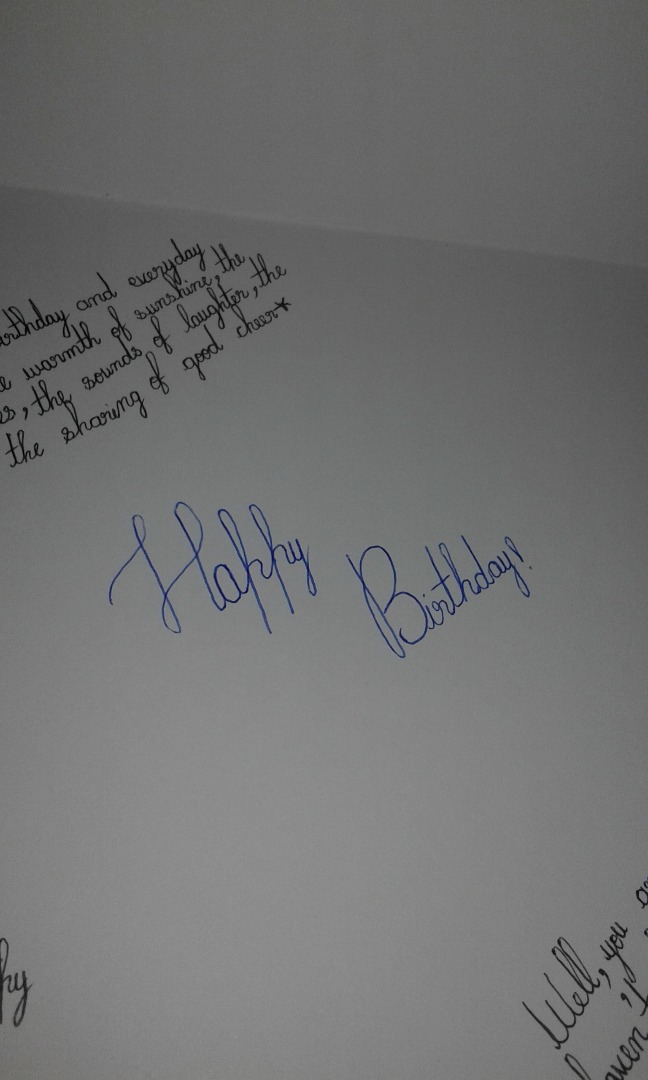 birthday and everyday
warmth of sunshine, the
, the sounds of laughter, the
the sharing of good cheer*
Happy Birthday!
Well, you